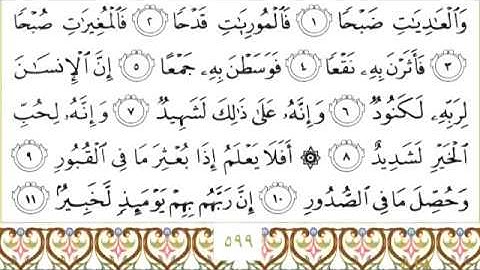 وَالْعَٰدِيَٰتِ ضَبْحًا ١ فَالْمُورِيَٰتِ قَدْحًا ٢ فَالْمُغِيرَٰتِ صُبْحًا
٣ فَأَثَرْنَ بِهِۦ نَقْعًا ٤ فَوَسَطْنَ بِهِۦ جَمْعًا ٥ إِنَّ الْإِنسَٰنَ
لِرَبِّهِۦ لَكَنُودٌ ٦ وَإِنَّهُۥ عَلَىٰ ذَٰلِكَ لَشَهِيدٌ ٧ وَإِنَّهُۥ لِحُبِّ
الْخَيْرِ لَشَدِيدٌ ٨ ۞ أَفَلَا يَعْلَمُ إِذَا بُعْثِرَ مَا فِي الْقُبُورِ ٩
وَحُصِّلَ مَا فِي الصُّدُورِ ١٠ إِنَّ رَبَّهُم بِهِمْ يَوْمَئِذٍ لَّخَبِيرٌ ١١
٥٩٩